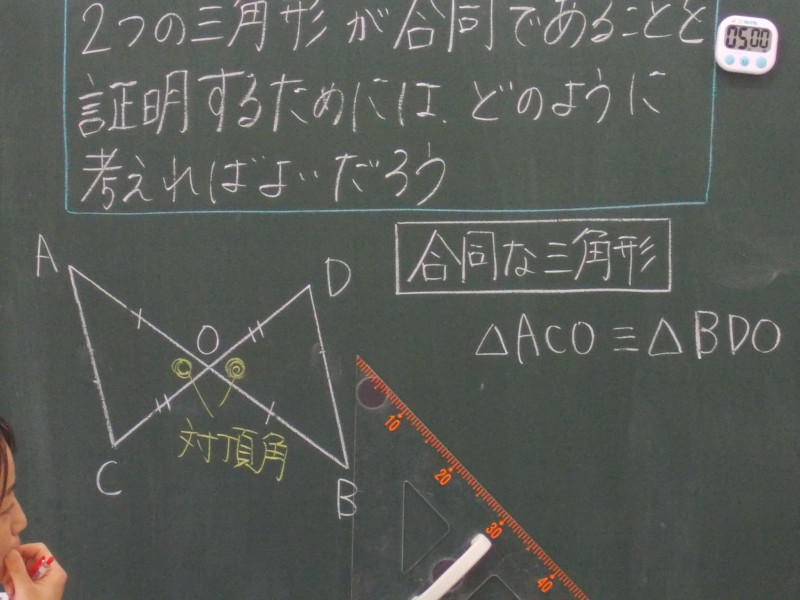 2つの三角形が合同であることを
証明するためには、どのように
考えればよいだろう
05 00
合同な三角形
△ACO≡△BDO
A
D
O
対頂角
C
B
10
20
30
40